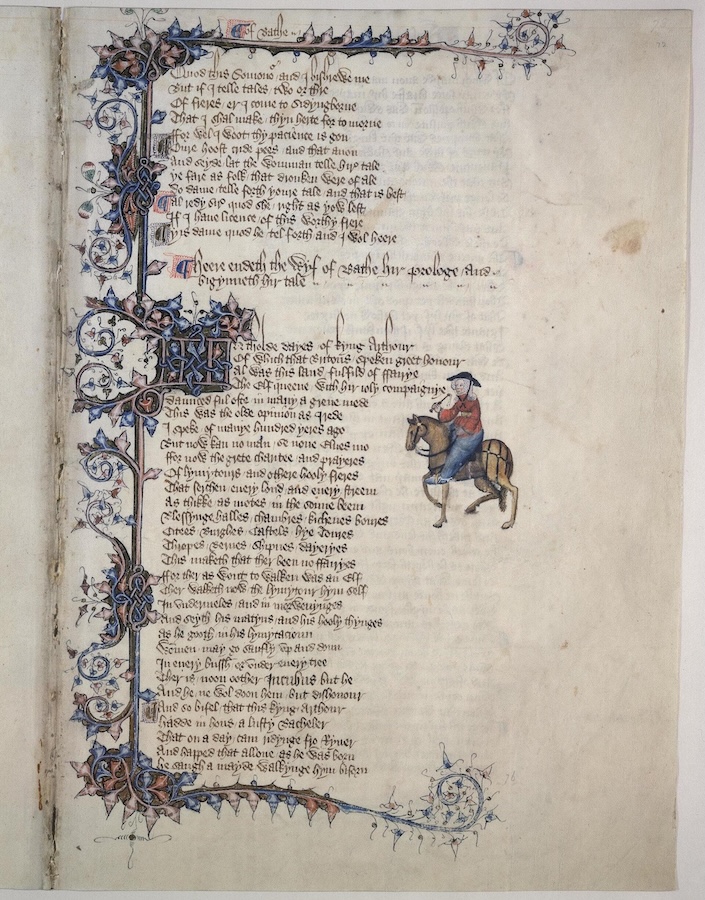 Of Bathe
Quod this Somonor and I bishrewe me
But if I telle tales two or thre
Of freres er I come to Sidyngborne
That I shal make thyn herte for to morne
ffor wel I woot thy pacience is gon
Oure hoost cride pees and that anon
And seyde lat the womman telle hire tale
ye fare as folk that dronken were of ale
Do dame telle forth youre tale and that is best
Al redy sire quod she right as yow lest
If I haue licence of this worthy frere
yis dame quod he tel forth and I wol heere
Heere endeth the Wyf of Bathe hir prologe and
bigynneth hir tale
In tholde dayes of kyng Arthour
Of which that Britons speken greet honour
Al was this land fulfild of ffairye
The Elf queene with hir ioly compaignye
Daunced ful ofte in many a grene mede
This was the olde opinion as I rede
I speke of manye hundred yeres ago
But now kan no man se none Elues mo
ffor now the grete charitee and prayeres
Of lymytours and othere hooly freres
That serchen euery lond and euery streem
As thikke as motes in the sonne beem
Blessynge halles chambres kichenes boures
Citees Burghes Castels hye Toures
Thropes Bernes Shipnes dayeryes
This maketh that ther been no ffairyes
ffor ther as wont to walken was an Elf
Ther walketh now the lymytour hym self
In vndermeles and in morwenynges
And seyth his matyns and his hooly thynges
As he gooth in his lymytacioun
Wommen may go saufly vp and doun
In euery bussh or vnder euery tree
Ther is noon oother Incubus but he
And he ne wol doon hem but dishonour
And so bifel that this kyng Arthour
hadde in hous a lusty Bacheler
That on a day cam ridynge fro Ryuer
And happed that allone as he was born
he saugh a mayde walkynge hym biforn